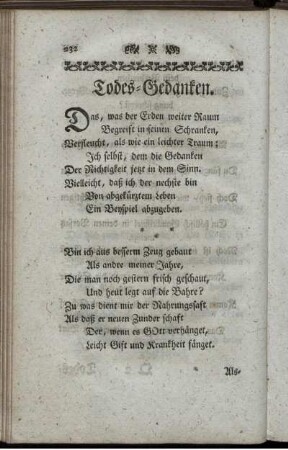 232
Todes-Gedanken.
Das, was der Erden weiter Raum
Begreift in seinen Schranken,
Verfleucht, als wie ein leichter Traum;
Ich selbst, dem die Gedanken
Der Nichtigkeit jezt in dem Sinn,
Vielleicht, daß ich der nechste bin
Von abgekürztem Leben
Ein Beyspiel abzugeben.
* * *
Bin ich aus besserm Zeug gebaut
Als andre meiner Jahre,
Die man noch gestern frisch geschaut,
Und heut legt auf die Bahre?
Zu was dient mir der Nahrungssaft
Als daß er neuen Zunder schaft
Der, wenn es GOtt verhänget,
Leicht Gift und Krankheit fänget.
Als-